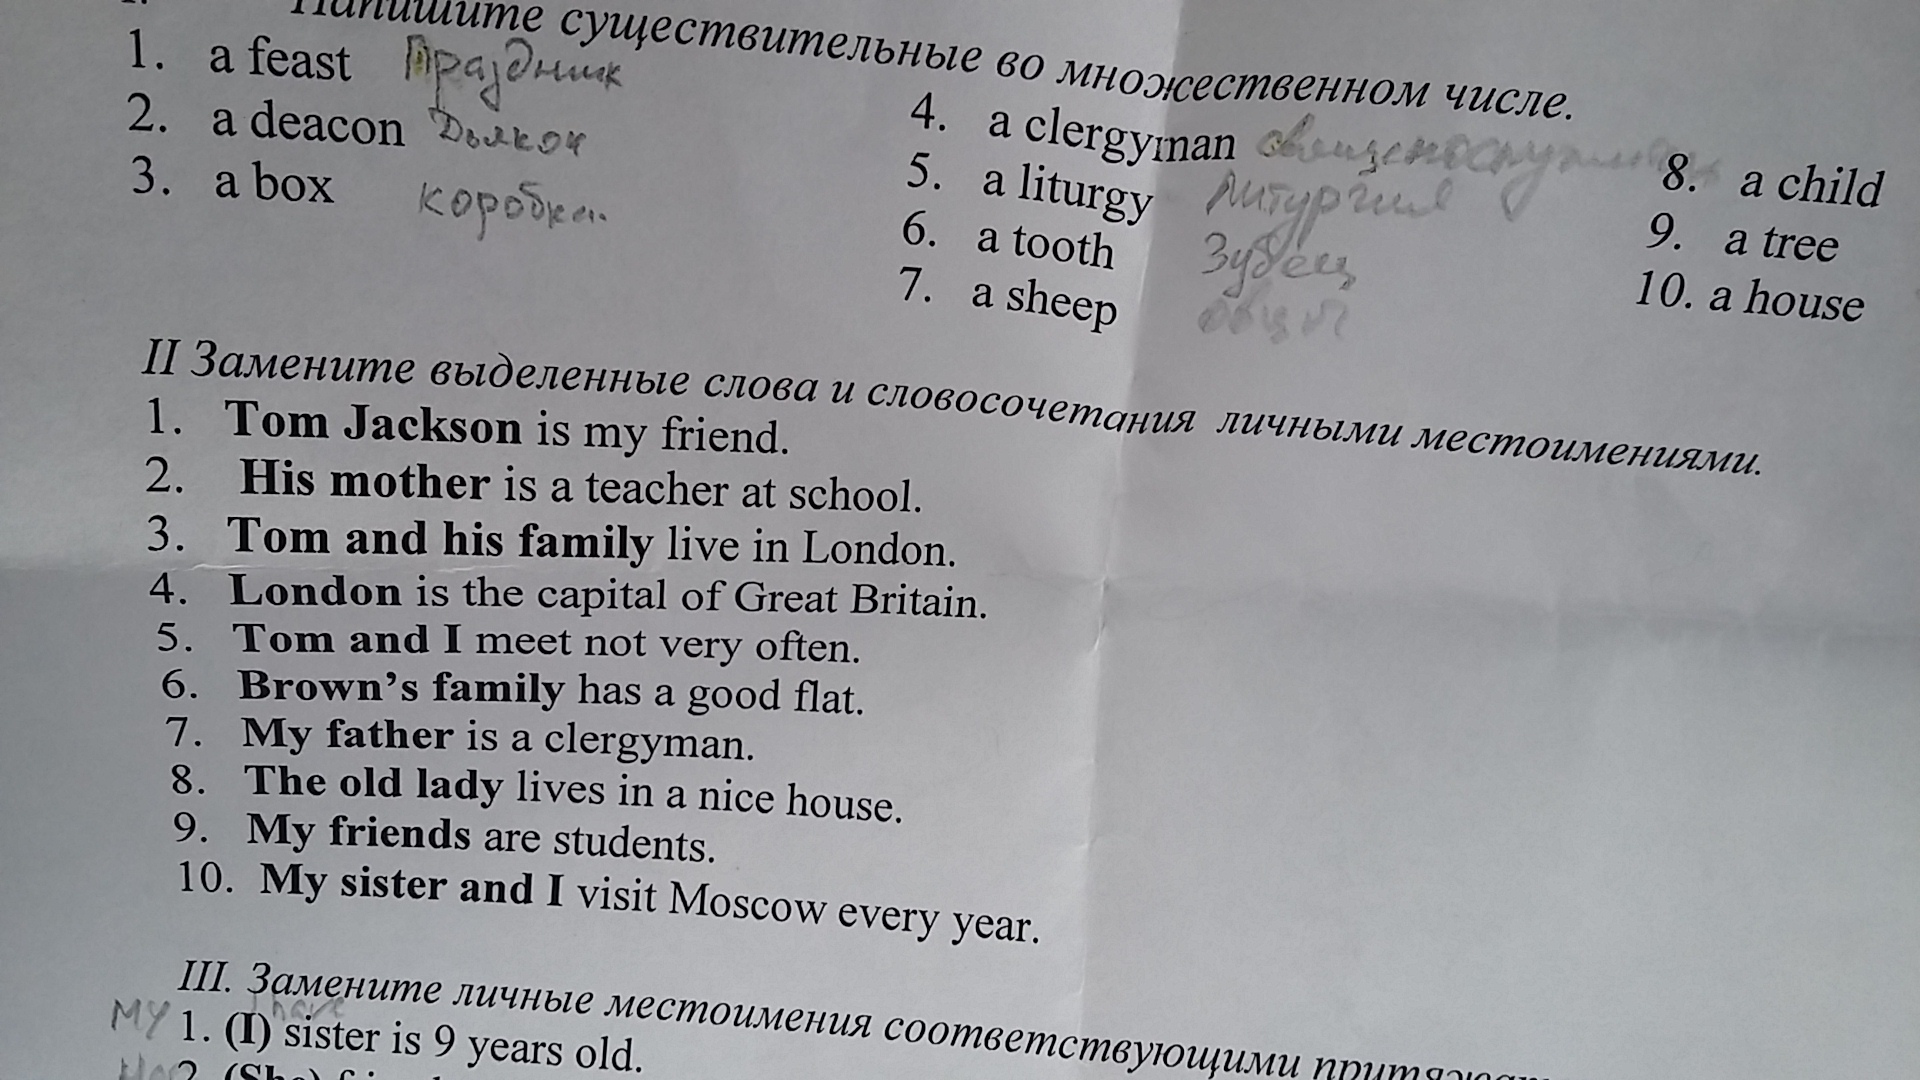 Напишите существительные во множественном числе.
1. a feast Праздник
2. a deacon Дьякон
3. a box коробка.
4. a clergyman
5. a liturgy Литургия
6. a tooth Зубец
7. a sheep
8. a child
9. a tree
10. a house
II Замените выделенные слова и словосочетания личными местоимениями.
1. Tom Jackson is my friend.
2. His mother is a teacher at school.
3. Tom and his family live in London.
4. London is the capital of Great Britain.
5. Tom and I meet not very often.
6. Brown’s family has a good flat.
7. My father is a clergyman.
8. The old lady lives in a nice house.
9. My friends are students.
10. My sister and I visit Moscow every year.
III. Замените личные местоимения соответствующими
have
MY 1. (I) sister is 9 years old.
2. (She)